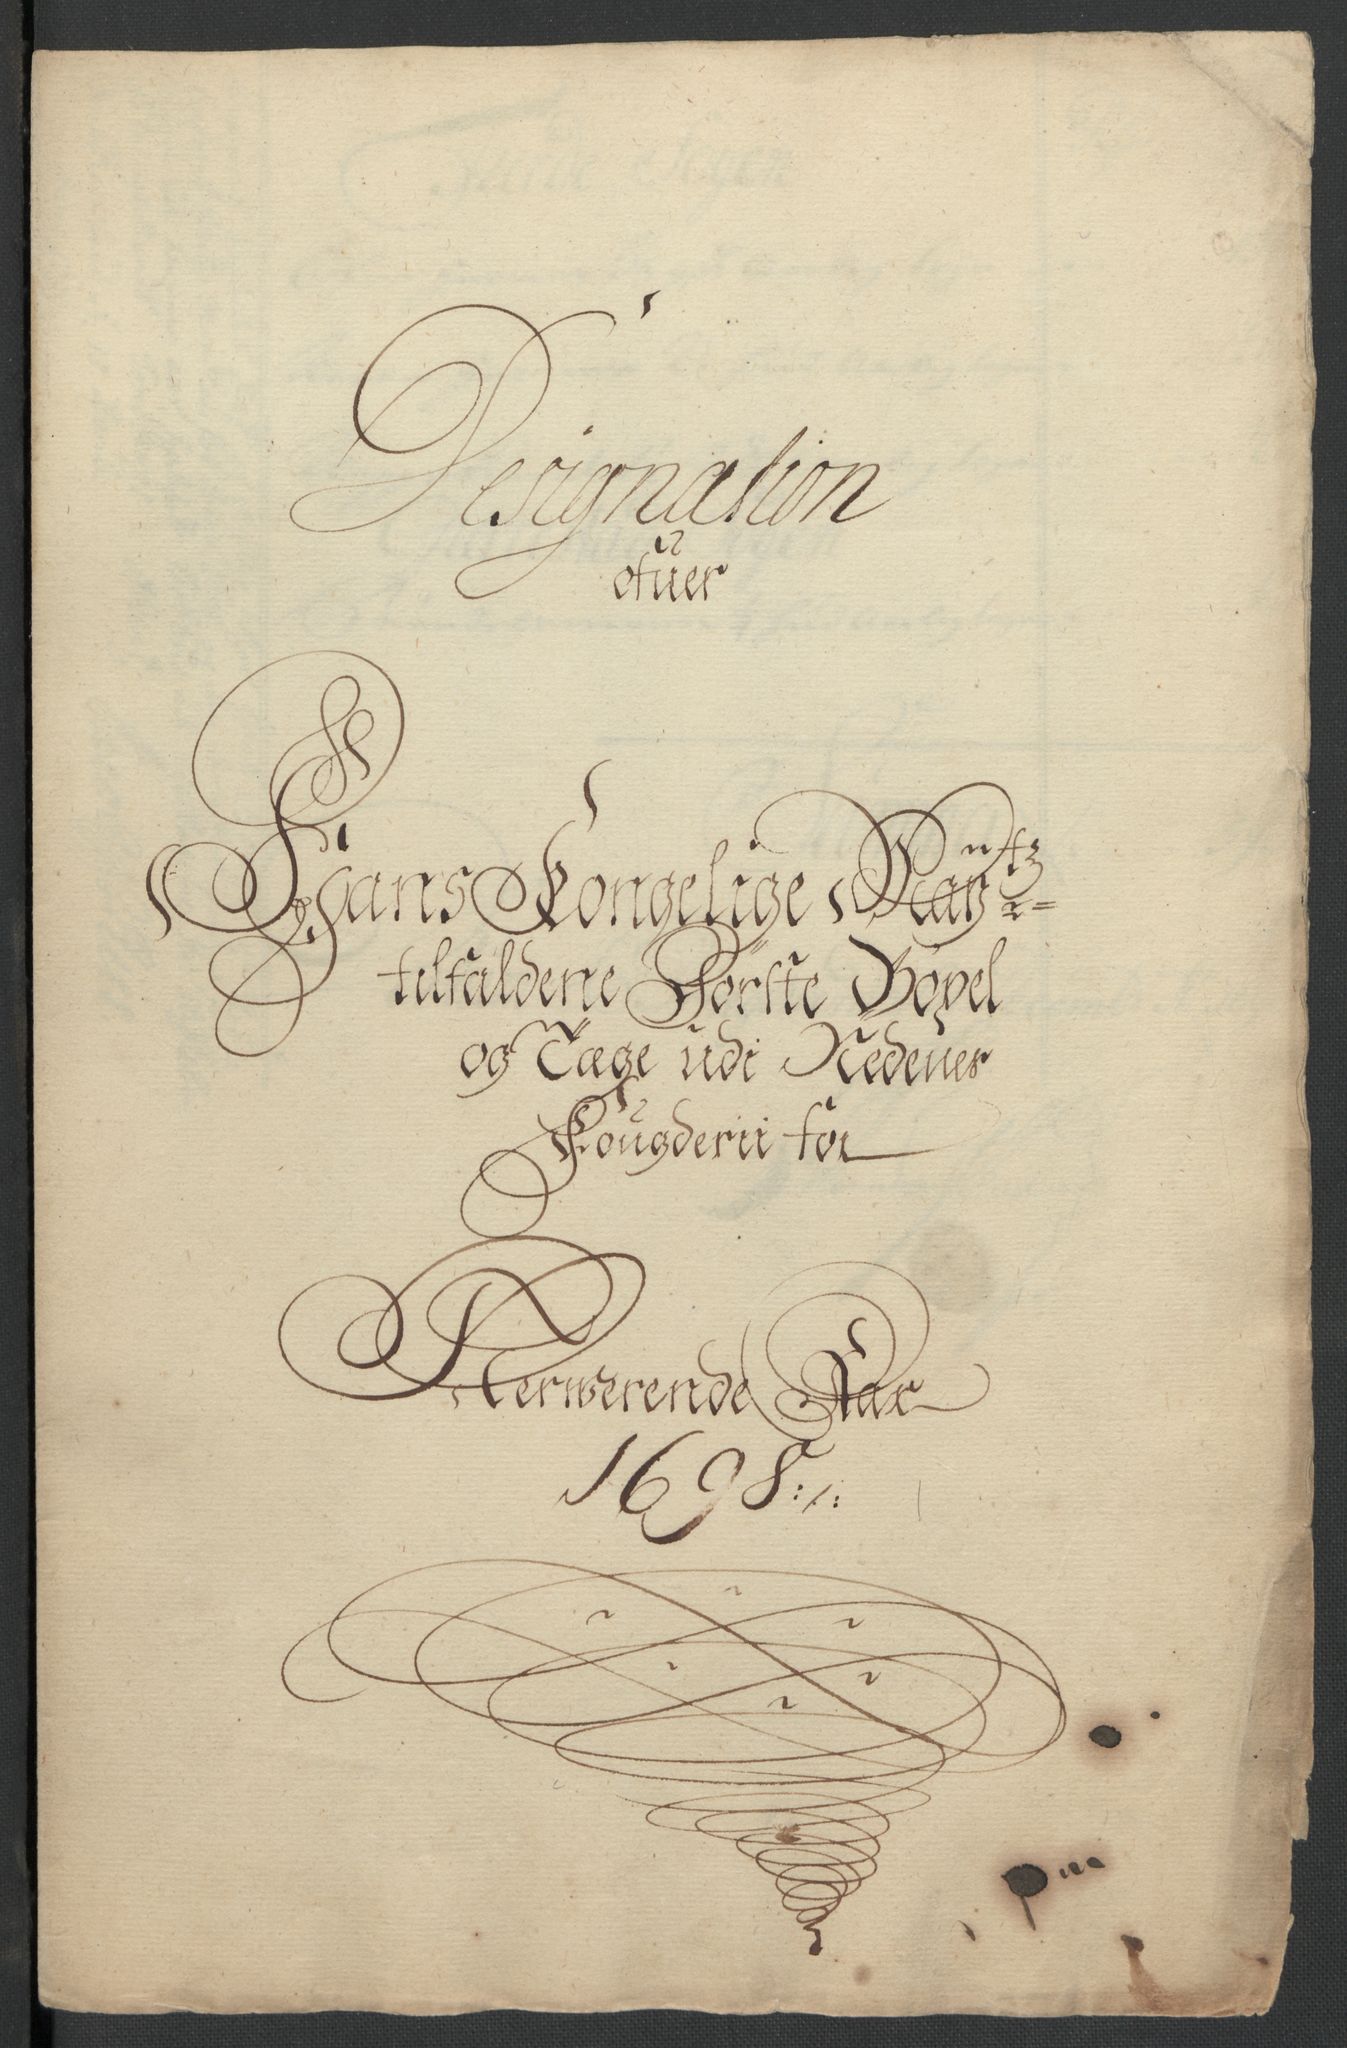 Designation
ofuer
Hans Kongelige May:tz
tilfaldene Første Bøxel
og Tæge udi Nedenes
Fougderii for
Nerwerende Aar
1698